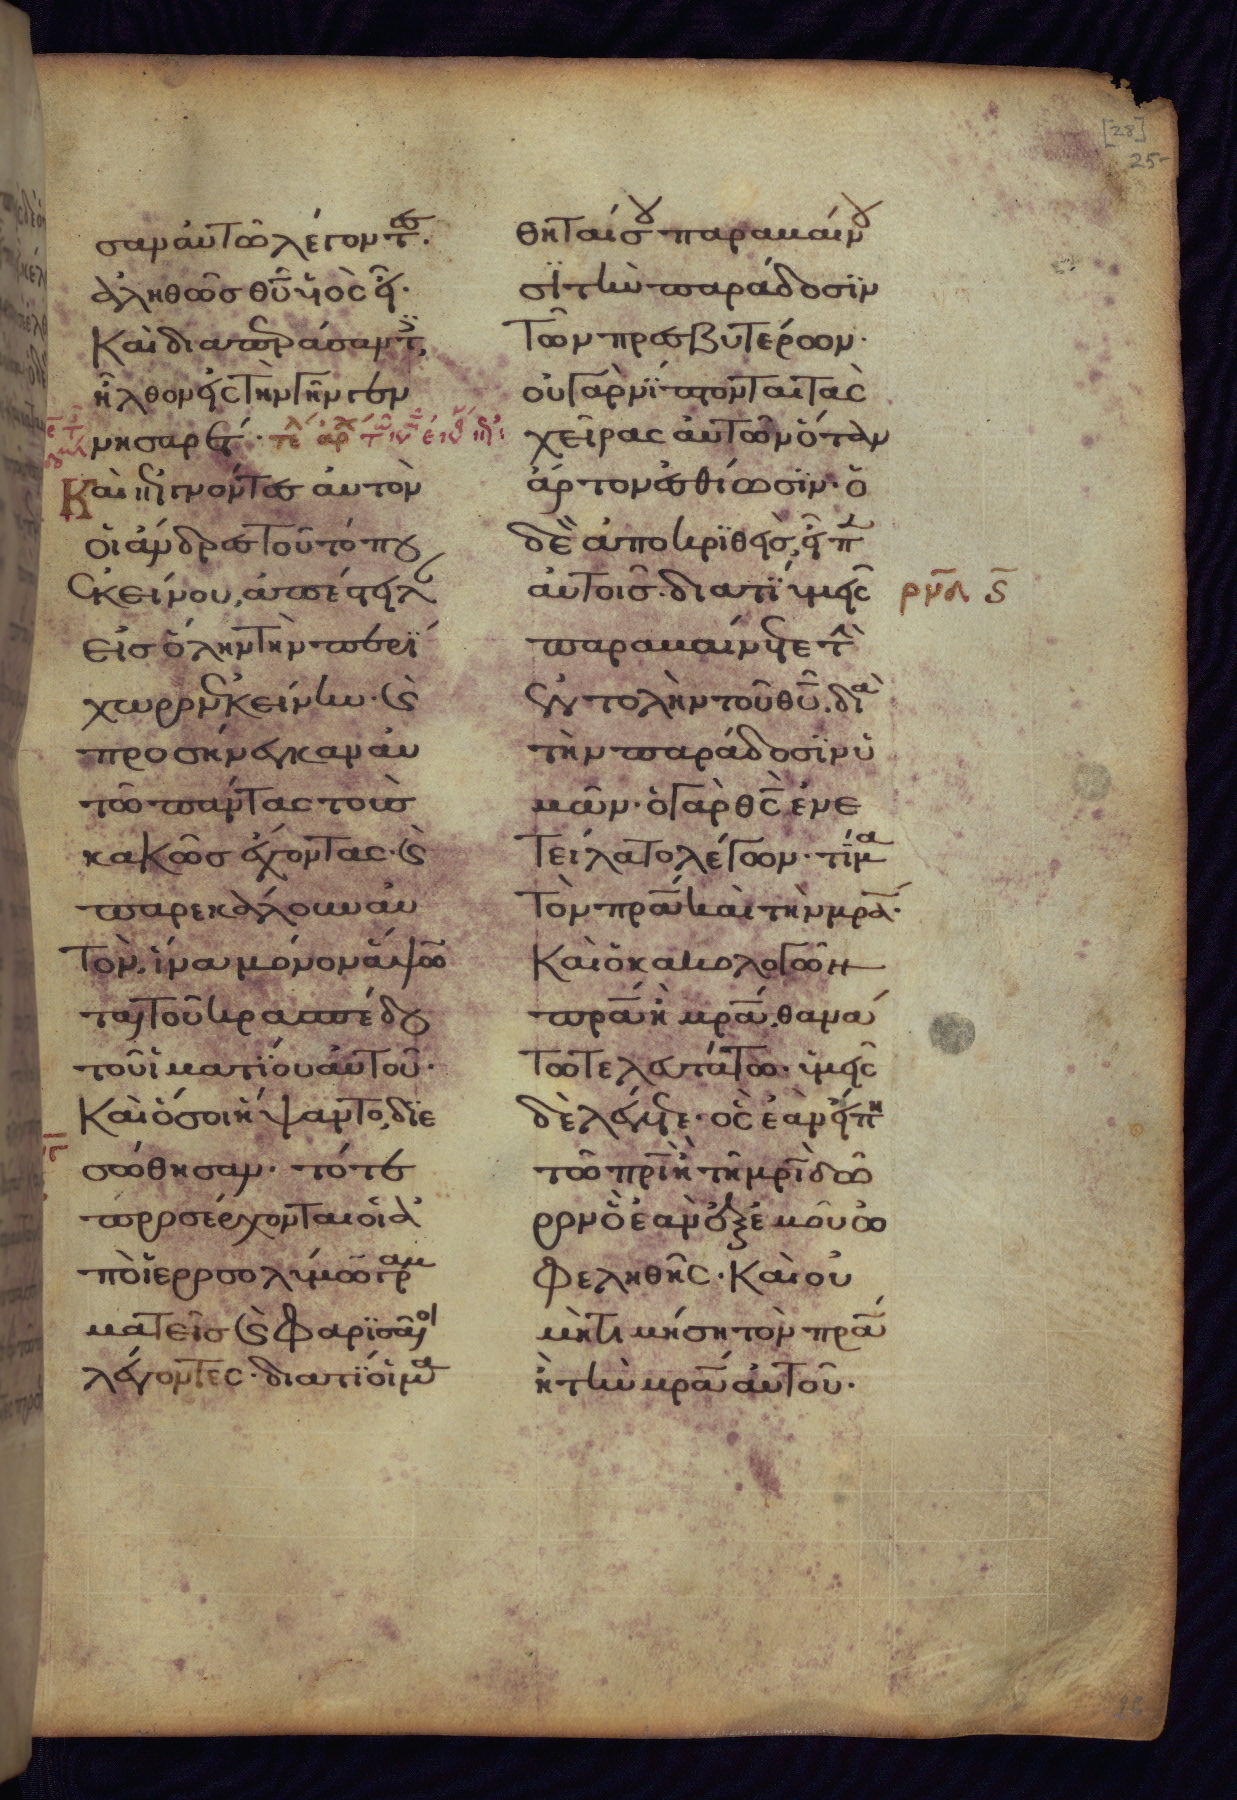 σαν αὐτῶ λέγοντ(ες)·
ἀληθῶς θῡ ϋἱὸς εἶ·
Καὶ διαπεράσαντ(ες),
ἦλθον εἰς τὴν γῆν γεν
νησαρετ·
Καὶ ἐπιγνόντες αὐτὸν
οἱ ἄνδρες τοῦ τόπου
ἐκείνου, ἀπέστειλ
εἰς ὅλην τὴν περί
χωρον ἐκείνην· (καὶ)
προσήνεγκαν αὐ
τῶ πάντας τοὺς
κακῶς ἔχοντας· (καὶ)
παρεκάλουν αὐ
τὸν, ἵνα μόνον ἅψω
ται τοῦ κρασπέδου
τοῦ ἱματίου αὐτοῦ·
Καὶ ὅσοι ἥψαντο, διε
σώθησαν· τότε
προσέρχονται οἱ ἀ
πὸ ἱεροσολύμων γραμ
ματεῖς (καὶ) Φαρϊσαῖοι
λέγοντες· διατί οἱ μα
θηταί σου παραβαίνου
σϊ τὴν παράδοσϊν
τῶν πρεσβυτέρων·
οὐ γὰρ νίπτονται τὰς
χεῖρας αὐτῶν ὅταν
ἄρτον ἐσθίωσϊν· ὁ
δὲ ἀποκρϊθεὶς, εἶπ
αὐτοῖς· διατί ὑμεῖς
παραβαίνετε τ(ὴν)
ἐντολὴν τοῦ θῡ, διὰ
τὴν παράδοσϊν ὑ
μῶν· ὁ γὰρ θς̄ ἐνε
τείλατο λέγων· τίμα
τὸν πρ̄α καὶ τὴν μρ̄α·
Καὶ ὁ κακολογῶν
πρ̄α ἢ μρ̄α, θανά
τω τελευτάτω· ὑμεῖς
δὲ λέγετε· ὃς ἐὰν εἴπη
τῶ πρ̄ι ἢ τῆ μρ̄ι δῶ
ρον ὃ ἐὰν ἐξ ἐμοῦ ὠ
φεληθῆς· Καὶ οὐ
μὴ τιμήση τὸν πρ̄α
ἢ τὴν μρ̄α αὐτοῦ·
ρνδ ς̄
[28]
25